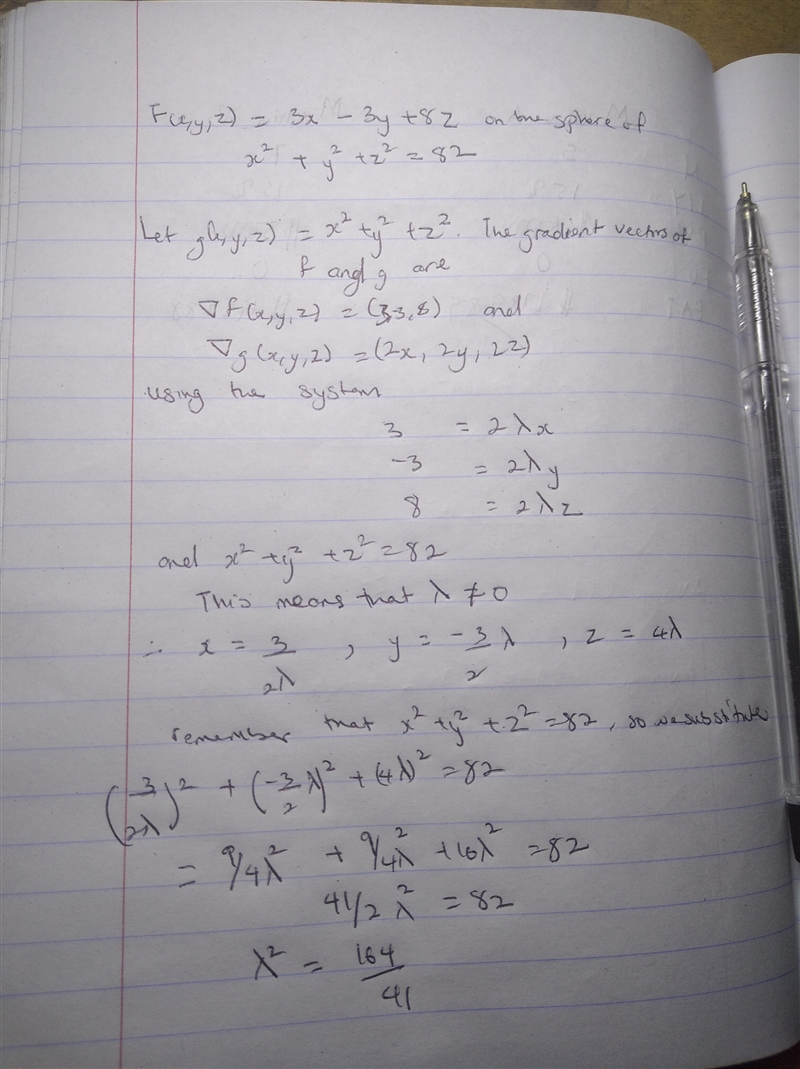 F(x,y,z) = 3x - 3y + 8z on the sphere of
x² + y² + z² = 82
Let g(x,y,z) = x² + y² + z². The gradient vectors of
f and g are
∇F(x,y,z) = (3,3,8) and
∇g(x,y,z) = (2x, 2y, 2z)
using the system
3 = 2λx
-3 = 2λy
8 = 2λz
and x² + y² + z² = 82
This means that λ ≠ 0
∴ x = 3/2λ , y = -3/2 λ , z = 4λ
remember that x² + y² + z² = 82, so we substitute
(3/2λ)² + (-3/2 λ)² + (4λ)² = 82
= 9/4λ² + 9/4λ² + 16λ² = 82
41/2 λ² = 82
λ² = 164/41